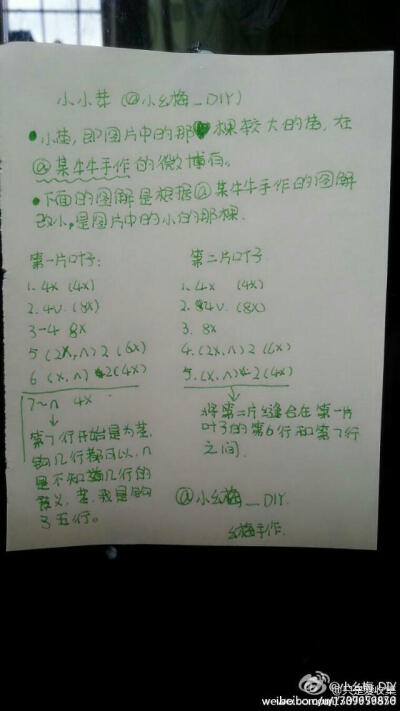 小小芽 (@小幺梅_DIY)
●小苗,即图片中的那棵较大的苗,在
@某牛牛手作的微博有。
●下面的图解是根据@某牛牛手作的图解
改小,是图片中的小的那棵.
第一片叶子:
1. 4X (4X)
2. 4V (8X)
3-4 8X
5 (2X,∧)2 (6X)
6 (X,∧)2(4X)
7~n 4X
↓
第7行开始是为茎,
钩几行都可以,n
是不知道几行的
意义,茎,我是钩
了五行。
第二片叶子
1. 4X (4X)
2. 4V. (8X)
3. 8X
4. (2X,∧)2 (6X)
5. (X,∧)2(4X)
↓
将第二片缝合在第一片
叶子的第6行和第7行
之间.
@小幺梅_DIY.
幺梅手作.
@小幺梅_DIY